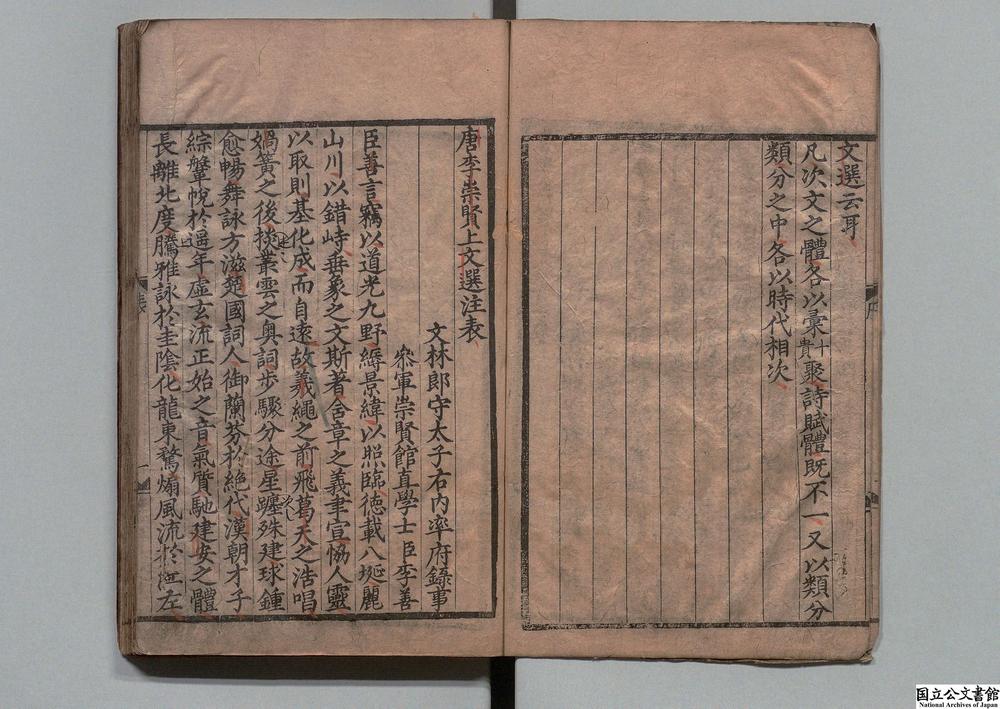 文選云耳
凡次文之體各以彙十貴聚詩賦體既不一又以類分
類分之中各以時代相次
序
唐李崇賢上文選注表
文林郎守太子右內率府錄事
叅軍崇賢館直學士臣李善
臣善言竊以道光九野縟景緯以照臨德載八埏麗
山川以錯峙垂象之文斯著含章之義聿宣恊人靈
以取則基化成而自遠故羲繩之前飛葛天之浩唱
媧簧之後掞叢雲之奥詞步驟分途星躔殊建球鍾
愈暢舞詠方滋楚國詞人御蘭芬於絶代漢朝才子
綜鞶帨於遥年虛玄流正始之音氣質馳建安之體
長離北度騰雅詠於圭陰化龍東騖煽風流於江左
表
一
国立公文書館
National Archives of Japan